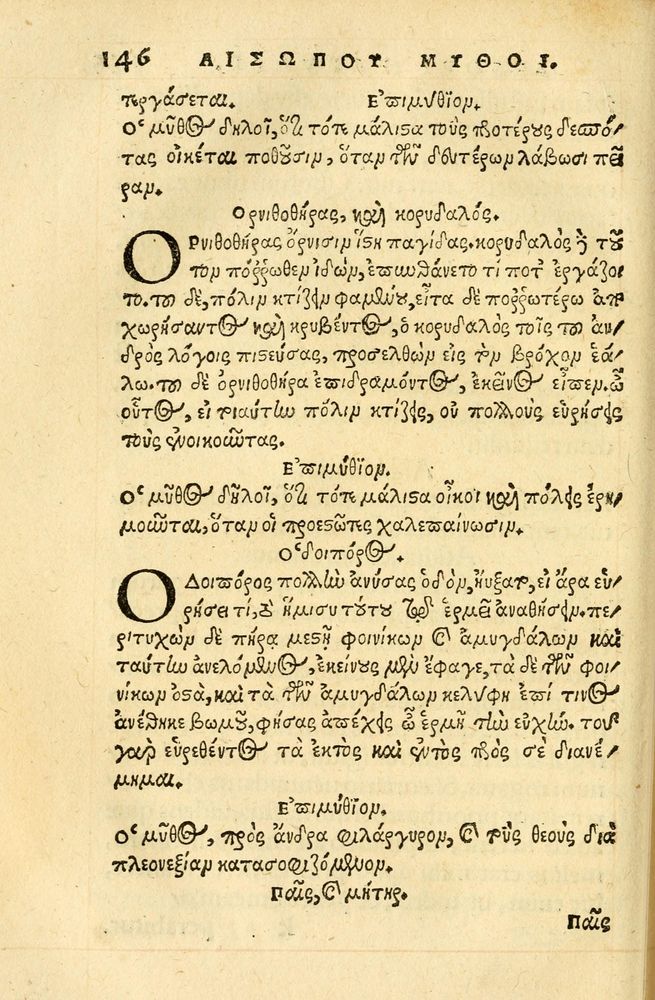 146 ΑΙΣΩΠΟΥ ΜΥΘΟΙ.
περγάσεται. Επιμύθιον.
Ο μῦθος δηλοῖ, ὅτι τότε μάλιστα τοὺς προτέρους δεσπό-
τας οἰκέται ποθοῦσιν, ὅταν τῶν δευτέρων λάβωσι πεῖ
ραν.
Ορνιθοθήρας, καὶ κορυδαλός.
ΟΡνιθοθήρας ὄρνισιν ἵστη παγίδας. κορυδαλὸς δὲ τοῦ
τον πόῤῥωθεν ἰδὼν, ἐπυνθάνετο τί ποτ' ἐργάζοι
το. τοῦ δὲ, πόλιν κτίζειν φαμένου, εἶτα δὲ ποῤῥωτέρω ἀπο
χωρήσαντος καὶ κρυβέντος, ὁ κορυδαλὸς τοῖς τοῦ ἀν
δρὸς λόγοις πιστεύσας, προσελθὼν εἰς τὸν βρόχον ἑά-
λω. τοῦ δὲ ὀρνιθοθήρα ἐπιδραμόντος, ἐκεῖνος εἶπεν. ὦ
οὗτος, εἰ τοιαύτην πόλιν κτίζεις, οὐ πολλοὺς εὑρήσεις
τοὺς ἐνοικοῦντας.
Επιμύθιον.
Ο μῦθος δηλοῖ, ὅτι τότε μάλιστα οἶκοι καὶ πόλεις ἐρη-
μοῦνται, ὅταν οἱ προεστῶτες χαλεπαίνωσιν.
Οδοιπόρος.
ΟΔοιπόρος πολλὴν ἀνύσας ὁδὸν, ηὔξατο, εἰ ἄρα εὑ-
ρήσει τί, τὸ ἥμισυ τούτου τῷ ἑρμῇ ἀναθήσειν. πε-
ριτυχὼν δὲ πήρᾳ μεστῇ φοινίκων καὶ ἀμυγδάλων καὶ
ταύτην ἀνελόμενος, ἐκείνους μὲν ἔφαγε, τὰ δὲ τῶν φοι-
νίκων ὀστᾶ, καὶ τὰ τῶν ἀμυγδάλων κελύφη ἐπί τινος
ἀνέθηκε βωμοῦ, φήσας ἀπέχεις ὦ ἑρμῆ τὴν εὐχήν. τοῦ
γὰρ εὑρεθέντος τὰ ἐκτὸς καὶ ἐντὸς πρὸς σὲ διανέ-
μημαι.
Επιμύθιον.
Ο μῦθος, πρὸς ἄνδρα φιλάργυρον, καὶ τοὺς θεοὺς διὰ
πλεονεξίαν κατασοφιζόμενον.
Παῖς, καὶ μήτηρ.
Παῖς